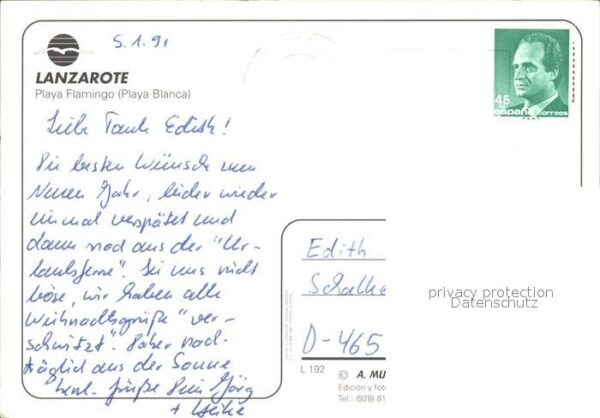 5.1.91
LANZAROTE
Playa Flamingo (Playa Blanca)
Liebe Tante Edith!
Die besten Wünsche zum
Neuen Jahr, leider wieder
einmal verspätet und
dann noch aus der "Ur-
laubsferne". Sei uns nicht
böse, wir haben alle
Weihnachtsgrüße "ver-
schwitzt". Daher nach-
träglich aus der Sonne
herzl. Grüße Dein Jörg
+ Heike
45
españa correos
Edith
Schalke
D-465
privacy protection
Datenschutz
L 192
© A. MU
Edición y foto
Tel.: (928) 81